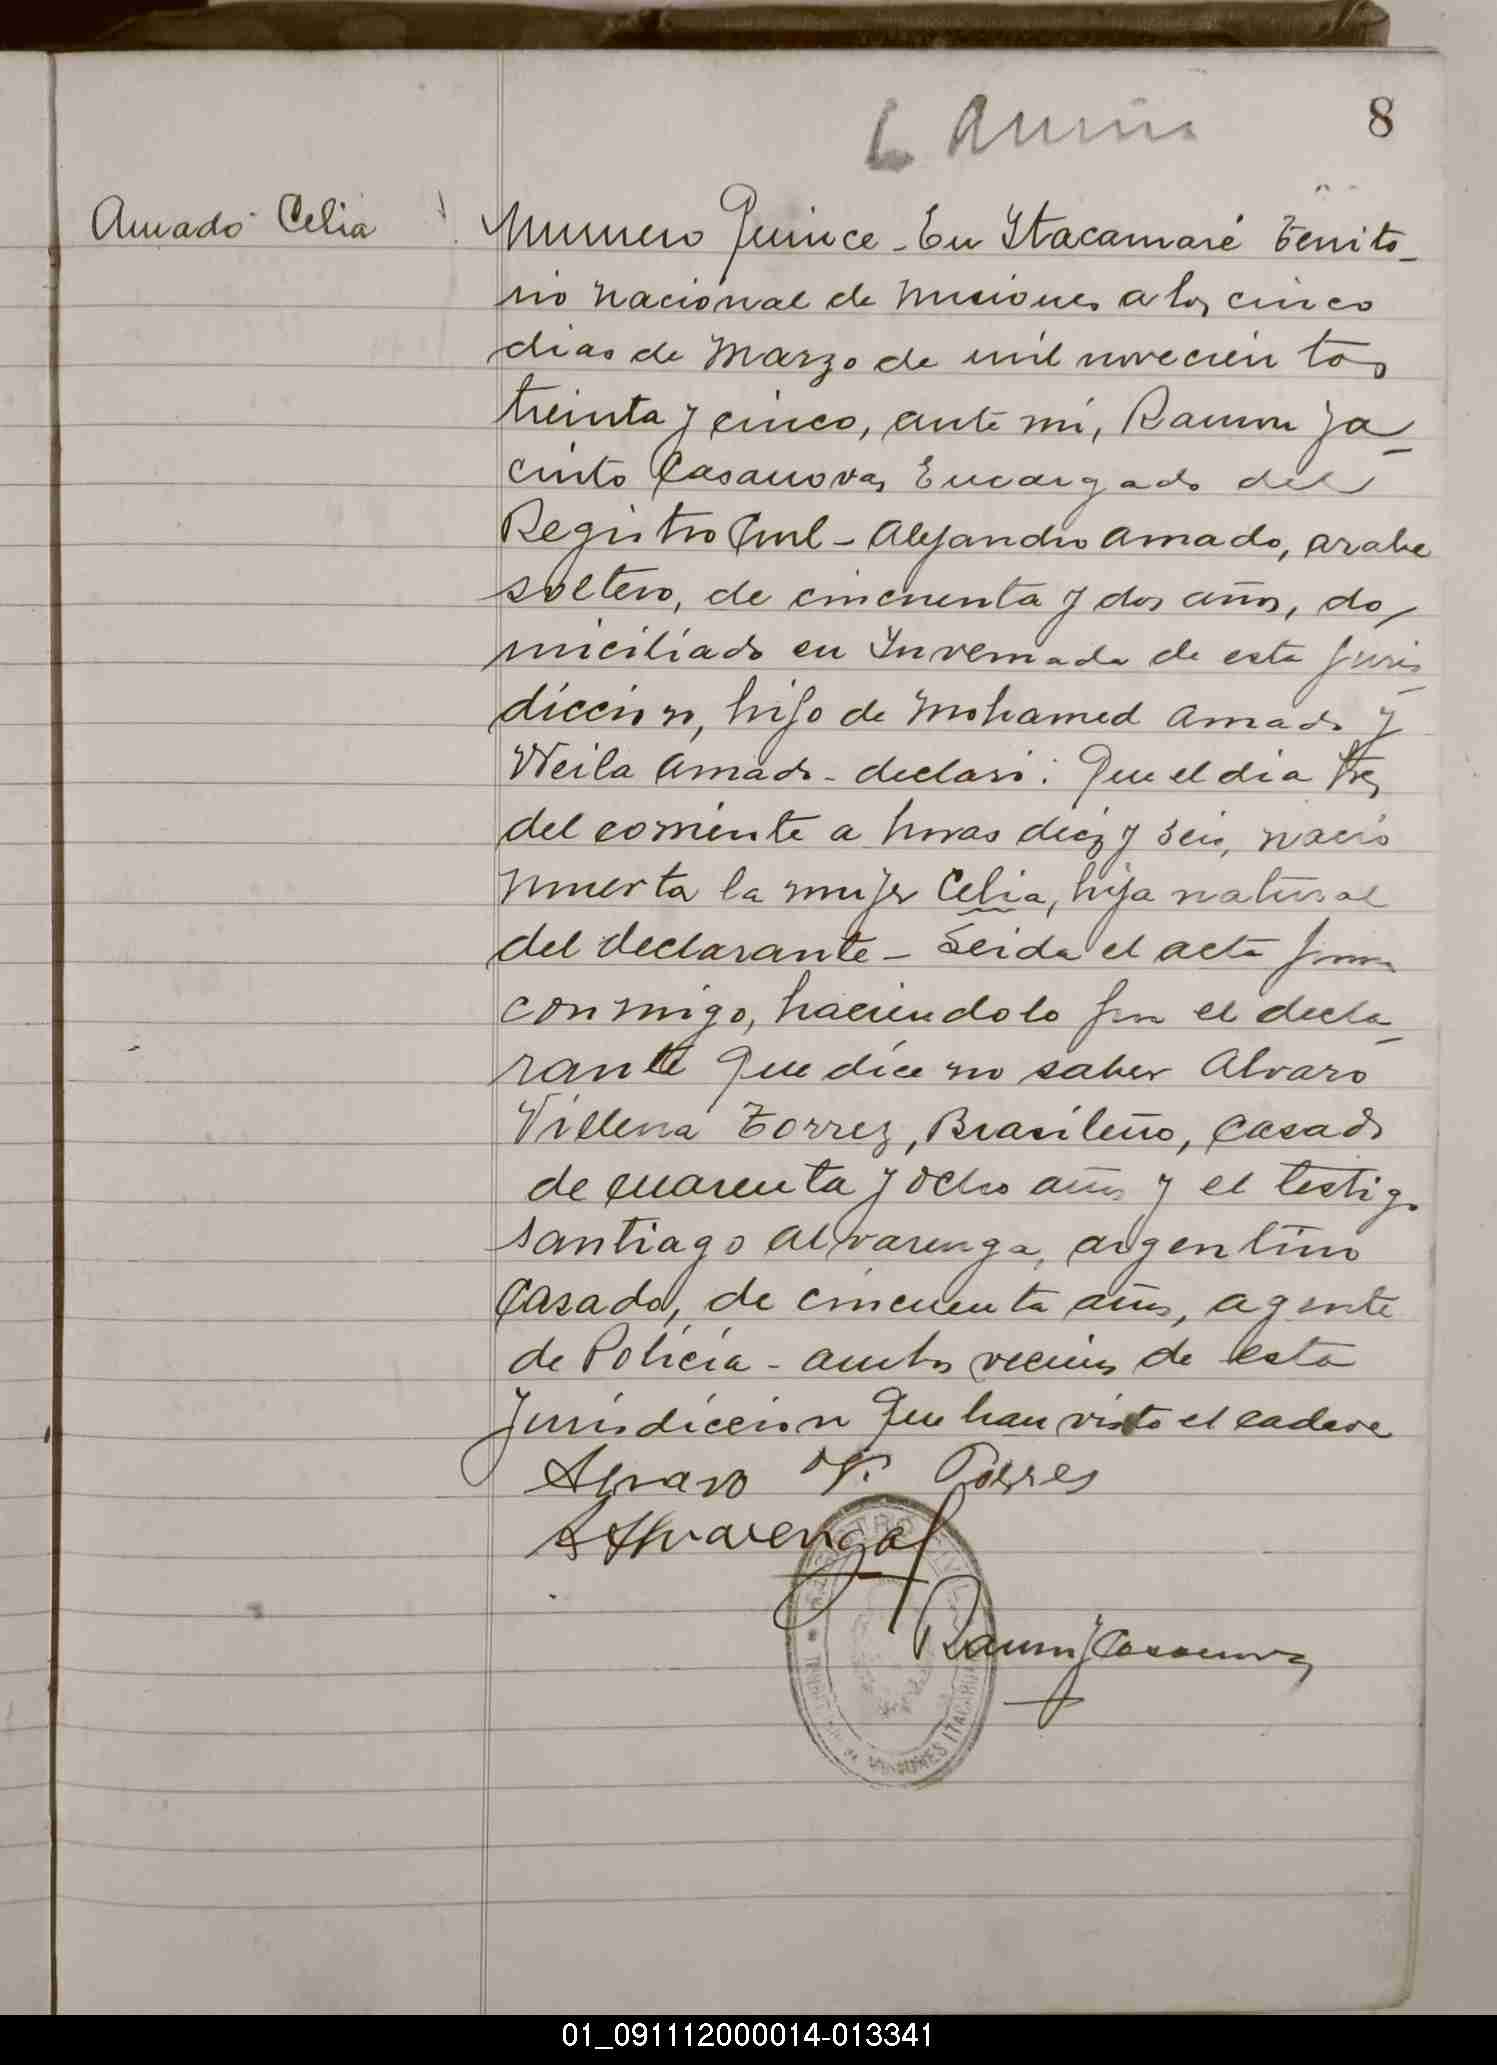 8
Amado Celia
Numero Quince - En Itacaruaré Territo-
rio Nacional de Misiones a los cinco
dias de Marzo de mil novecientos
treinta y cinco, ante mi, Ramon Ja-
cinto Casanova, Encargado del
Registro Civil - Alejandro Amado, arabe
soltero, de cincuenta y dos años, do-
miciliado en Invernada de esta juris-
diccion, hijo de Mohamed Amado y
Weila Amado - declaró: Que el dia tres
del corriente a horas diez y seis, nació
muerta la mujer Celia, hija natural
del declarante - Leida el acta firma
conmigo, haciendolo por el decla-
rante que dice no saber Alvaro
Villena Torrez, Brasileño, casado
de cuarenta y ocho años y el testigo
Santiago Alvarenga, argentino
Casado, de cincuenta años, agente
de Policia - ambos vecinos de esta
Jurisdiccion que han visto el cadave
Alvaro V. Torres
S Alvarenga
REGISTRO CIVIL
MISIONES ITACARUARE
Ramon J Casanova
01_091112000014-013341